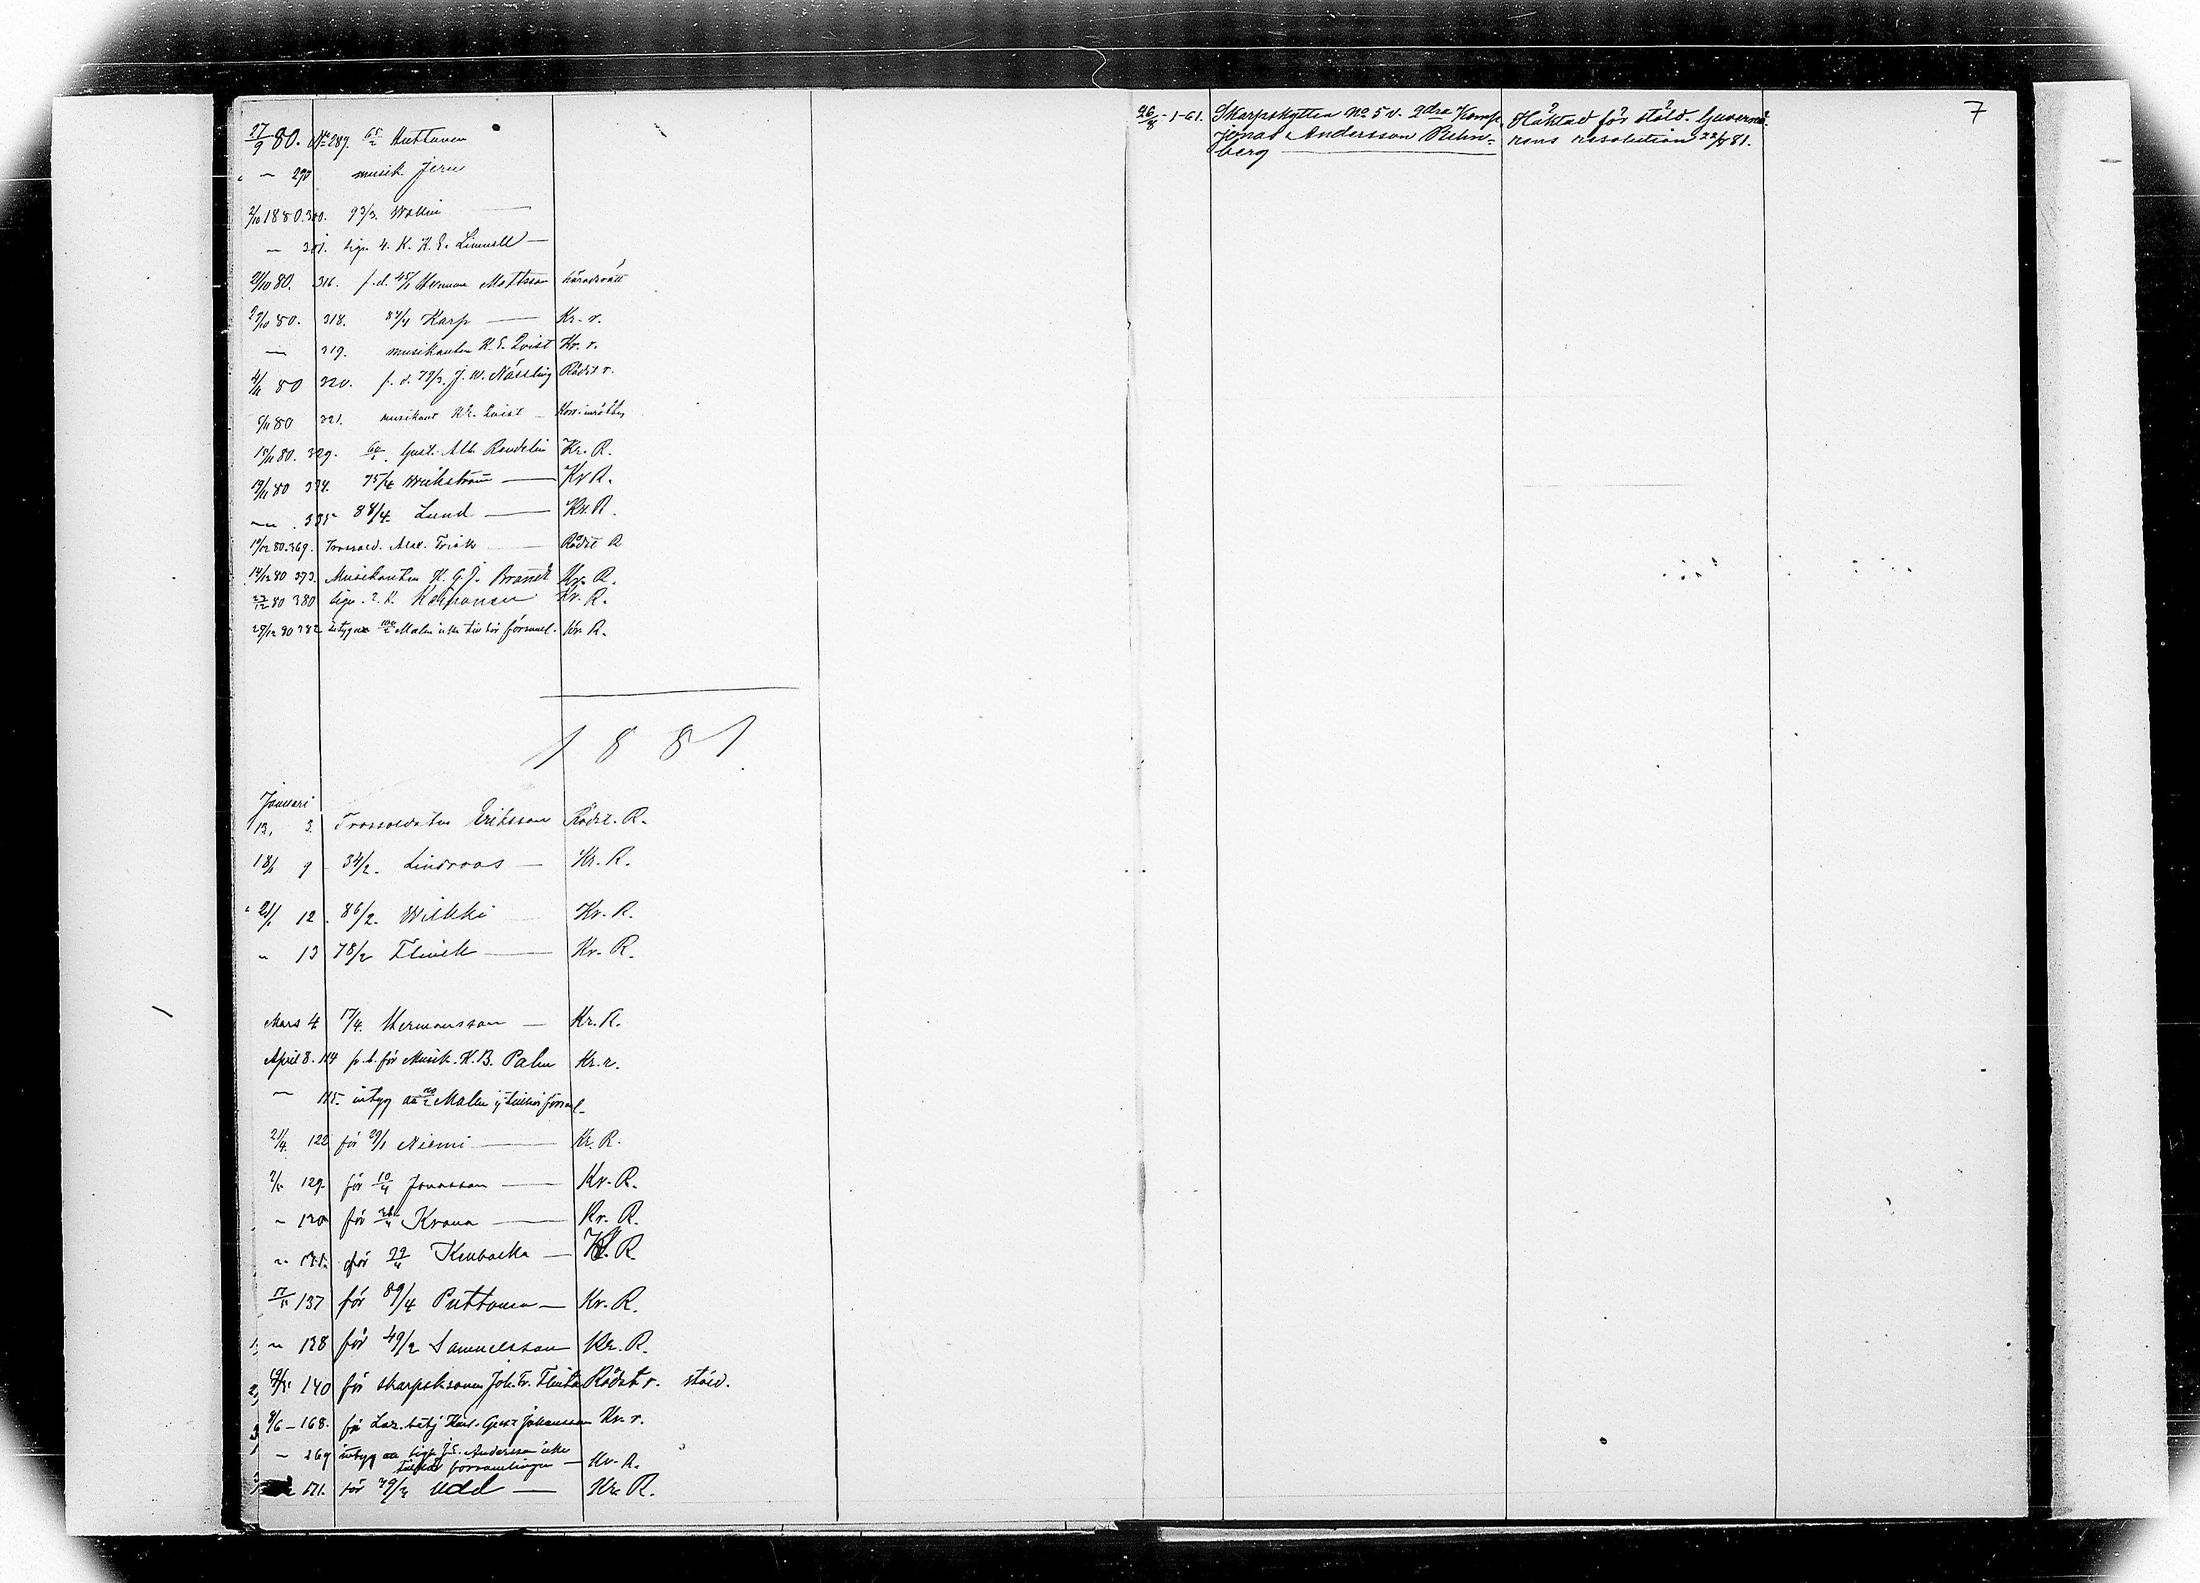 27/9 80. No 287. 65/2 Huttunen
" — 290 musik. Jern
2/10 1880. 300. 93/3. Wallin —
— 301. sign. 4. K. K. E. Linnell —
21/10 80. 316. f.d. 45/1 Herman Mattsson häradsrätt
22/10 80. 318. 84/4 Karp — Kr. r.
— 319. musikanten K. E. Qvist Kr. r.
4/11 80 320. f. d. 79/3. J. W. Nässling Rådst r.
5/11 80 321. musikant K. E. Qvist —
15/11 80. 329. Gust. Alb. Rendelin Kr. R.
19/11 80 334. 75/4 Wickström — Kr R.
— " . 335 88/4. Lund — Kr. R.
10/12 80. 369. Trossold. Alex. Frisk — Rådst R
14/12 80 373. Musikanten K. G. J. Brandt Kr. R.
22/12 80 380 sign. 2. K. Kr. R.
29/12 80 382 intyg aa 100/2 Malm icke tillhör församl. Kr. R.
1881
Januari
13, 3. Trossoldaten Eriksson Rådst. R.
18/1 9 34/2. Lindroos — Kr. R.
21/1 12. 86/2. Wilkki Kr. R.
" 13 78/2 Flinck — Kr. R.
Mars 4 17/4. Hermansson — Kr. R.
April 8. 114 p. b. för Musik. K. B. Palm Kr. r.
— 115. intyg aa Malm ej tillhör församl.
21/4. 122 för 29/1 Niemi — Kr. R.
2/5 129. för 10/4 Jonasson — Kr. R.
" 130 för Krona — Kr. R.
" 131. för 22/4 — Kr. R.
137 för 89/4 Puttonen — Kr. R.
" 138 för 49/2 Samuelsson Kr. R.
140 för skarpsksonen Joh. Fr. Flinta Rådst r. stöld.
9/6 — 168. för Laz. betj Karl. Gust Johansson Kr. r.
— 169 intyg aa sign J. E. Andersson icke
tillhör församlingen — Kr. R.
171. för 39/3 Udd — Kr. R.
26/8 - 1-61. Skarpskytten No 50. 2dra Komp.
Jonas Andersson Rehn=
berg
Häktad för stöld. Guvernö=
rens resolution 22/8 81.
7